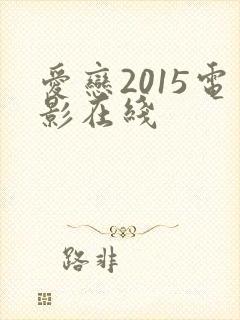 愛戀2015電
影在綫
路非